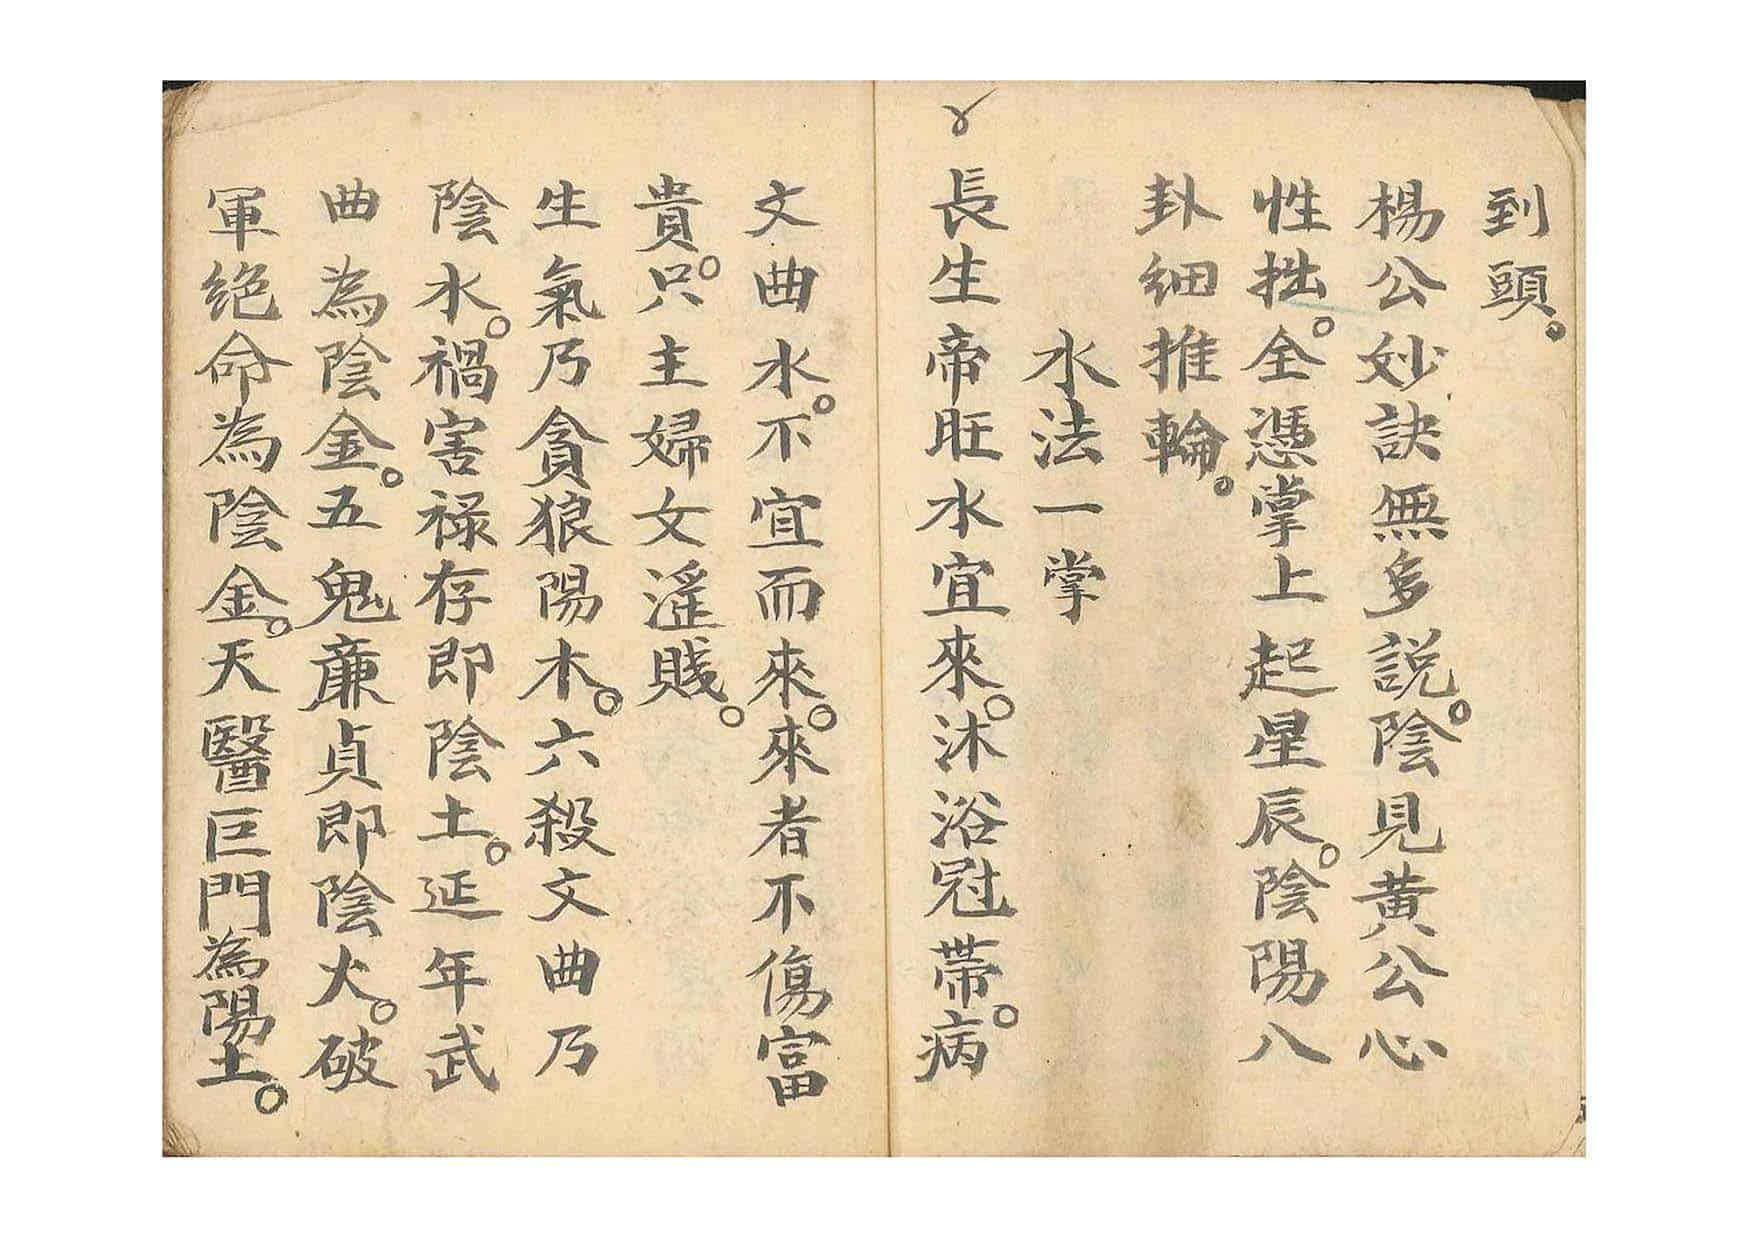 到頭。
楊公妙訣無多説。陰見黃公心
性拙。全憑掌上起星辰。陰陽八
卦細推輪。
水法一掌
長生帝旺水宜來。沐浴冠帶。病
文曲水。不宜而來。來者不傷富
貴。只主婦女滛賤。
生氣乃貪狼陽木。六殺文曲乃
陰水。禍害禄存即陰土。延年武
曲為陰金。五鬼廉貞即陰火。破
軍絕命為陰金。天醫巨門為陽土。